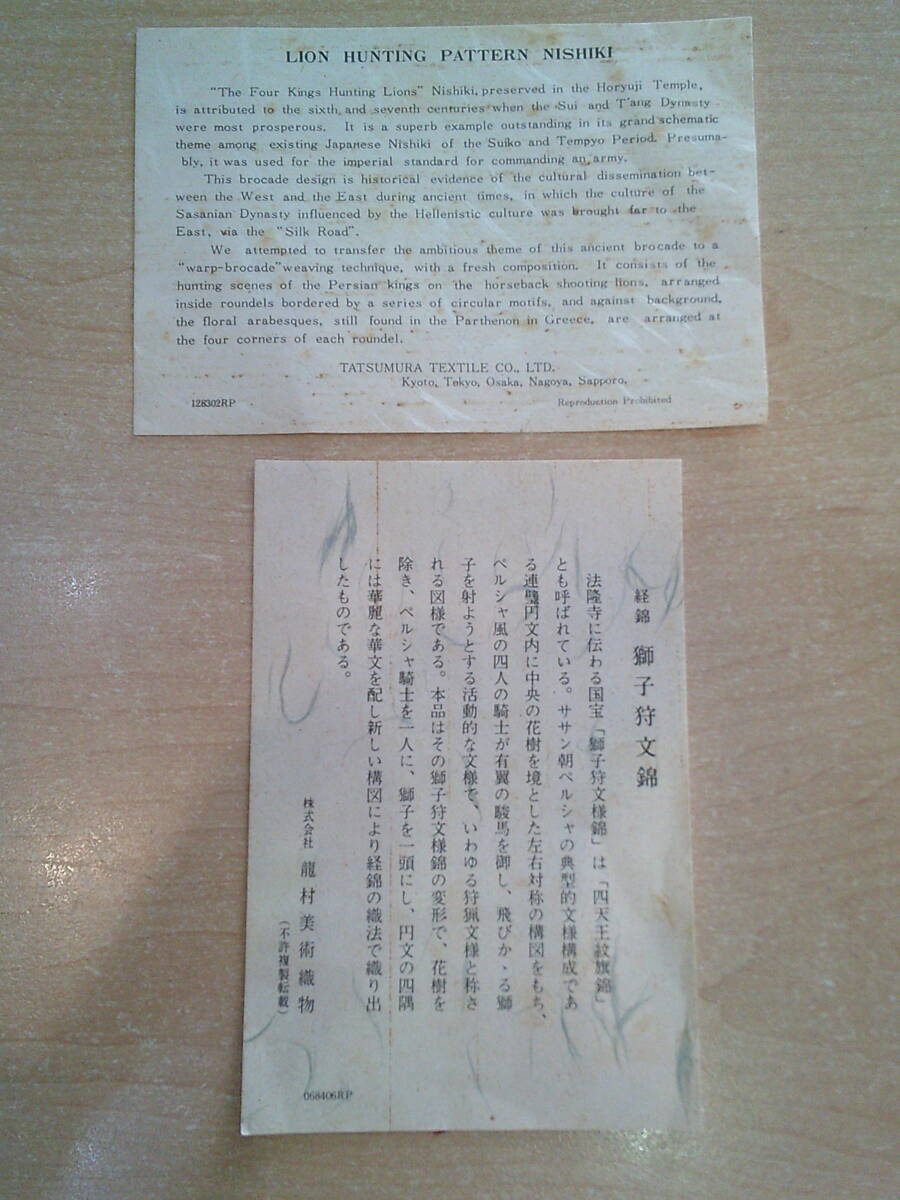 LION HUNTING PATTERN NISHIKI
"The Four Kings Hunting Lions" Nishiki, preserved in the Horyuji Temple,
is attributed to the sixth and seventh centuries when the Sui and T'ang Dynasty
were most prosperous. It is a superb example outstanding in its grand schematic
theme among existing Japanese Nishiki of the Suiko and Tempyo Period. Presuma-
bly, it was used for the imperial standard for commanding an army.
This brocade design is historical evidence of the cultural dissemination bet-
ween the West and the East during ancient times, in which the culture of the
Sasanian Dynasty influenced by the Hellenistic culture was brought far to the
East, via the "Silk Road".
We attempted to transfer the ambitious theme of this ancient brocade to a
"warp-brocade" weaving technique, with a fresh composition. It consists of the
hunting scenes of the Persian kings on the horseback shooting lions, arranged
inside roundels bordered by a series of circular motifs, and against background,
the floral arabesques, still found in the Parthenon in Greece, are arranged at
the four corners of each roundel.
TATSUMURA TEXTILE CO., LTD.
Kyoto, Tokyo, Osaka, Nagoya, Sapporo.
128302RP
Reproduction Prohibited
経錦 獅子狩文錦
法隆寺に伝わる国宝「獅子狩文様錦」は「四天王紋旗錦」
とも呼ばれている。ササン朝ペルシャの典型的文様構成であ
る連璧円文内に中央の花樹を境とした左右対称の構図をもち、
ペルシャ風の四人の騎士が有翼の駿馬を御し、飛びかゝる獅
子を射ようとする活動的な文様で、いわゆる狩猟文様と称さ
れる図様である。本品はその獅子狩文様錦の変形で、花樹を
除き、ペルシャ騎士を一人に、獅子を一頭にし、円文の四隅
には華麗な華文を配し新しい構図により経錦の織法で織り出
したものである。
株式会社 龍村美術織物
（不許複製転載）
068406RP